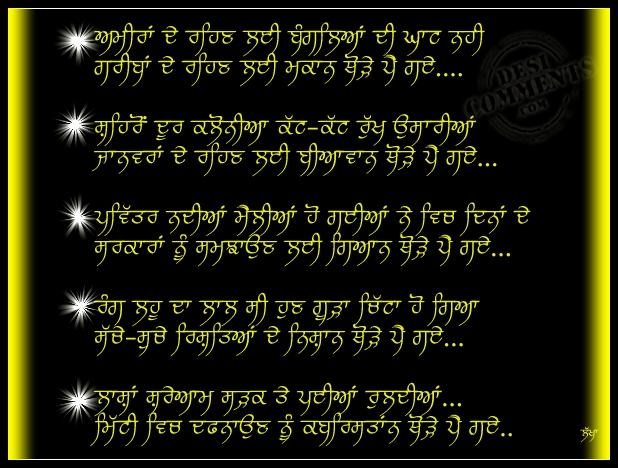 ਅਮੀਰਾਂ ਦੇ ਰਹਿਣ ਲਈ ਬੰਗਲਿਆਂ ਦੀ ਘਾਟ ਨਹੀ
ਗਰੀਬਾਂ ਦੇ ਰਹਿਣ ਲਈ ਮਕਾਨ ਥੋੜੇ ਪੈ ਗਏ....
DESI
COMMENTS
.COM
ਸ਼ਹਿਰੋਂ ਦੂਰ ਕਲੋਨੀਆ ਕੱਟ-ਕੱਟ ਰੁੱਖ ਉਸਾਰੀਆਂ
ਜਾਨਵਰਾਂ ਦੇ ਰਹਿਣ ਲਈ ਬੀਆਵਾਨ ਥੋੜੇ ਪੈ ਗਏ...
ਪਵਿੱਤਰ ਨਦੀਆਂ ਮੈਲੀਆਂ ਹੋ ਗਈਆਂ ਨੇ ਵਿਚ ਦਿਨਾਂ ਦੇ
ਸਰਕਾਰਾਂ ਨੂੰ ਸਮਝਾਉਣ ਲਈ ਗਿਆਨ ਥੋੜੇ ਪੈ ਗਏ...
ਰੰਗ ਲਹੂ ਦਾ ਲਾਲ ਸੀ ਹੁਣ ਗੂੜਾ ਚਿੱਟਾ ਹੋ ਗਿਆ
ਸੱਚੇ-ਸੁਚੇ ਰਿਸ਼ਤਿਆਂ ਦੇ ਨਿਸ਼ਾਨ ਥੋੜੇ ਪੈ ਗਏ...
ਲਾਸ਼ਾਂ ਸ਼ਰੇਆਮ ਸੜਕ ਤੇ ਪਈਆਂ ਰੁਲਦੀਆਂ...
ਮਿੱਟੀ ਵਿਚ ਦਫਨਾਉਣ ਨੂੰ ਕਬਰਿਸਤਾਂਨ ਥੋੜੇ ਪੈ ਗਏ..
ਲੱਖਾ